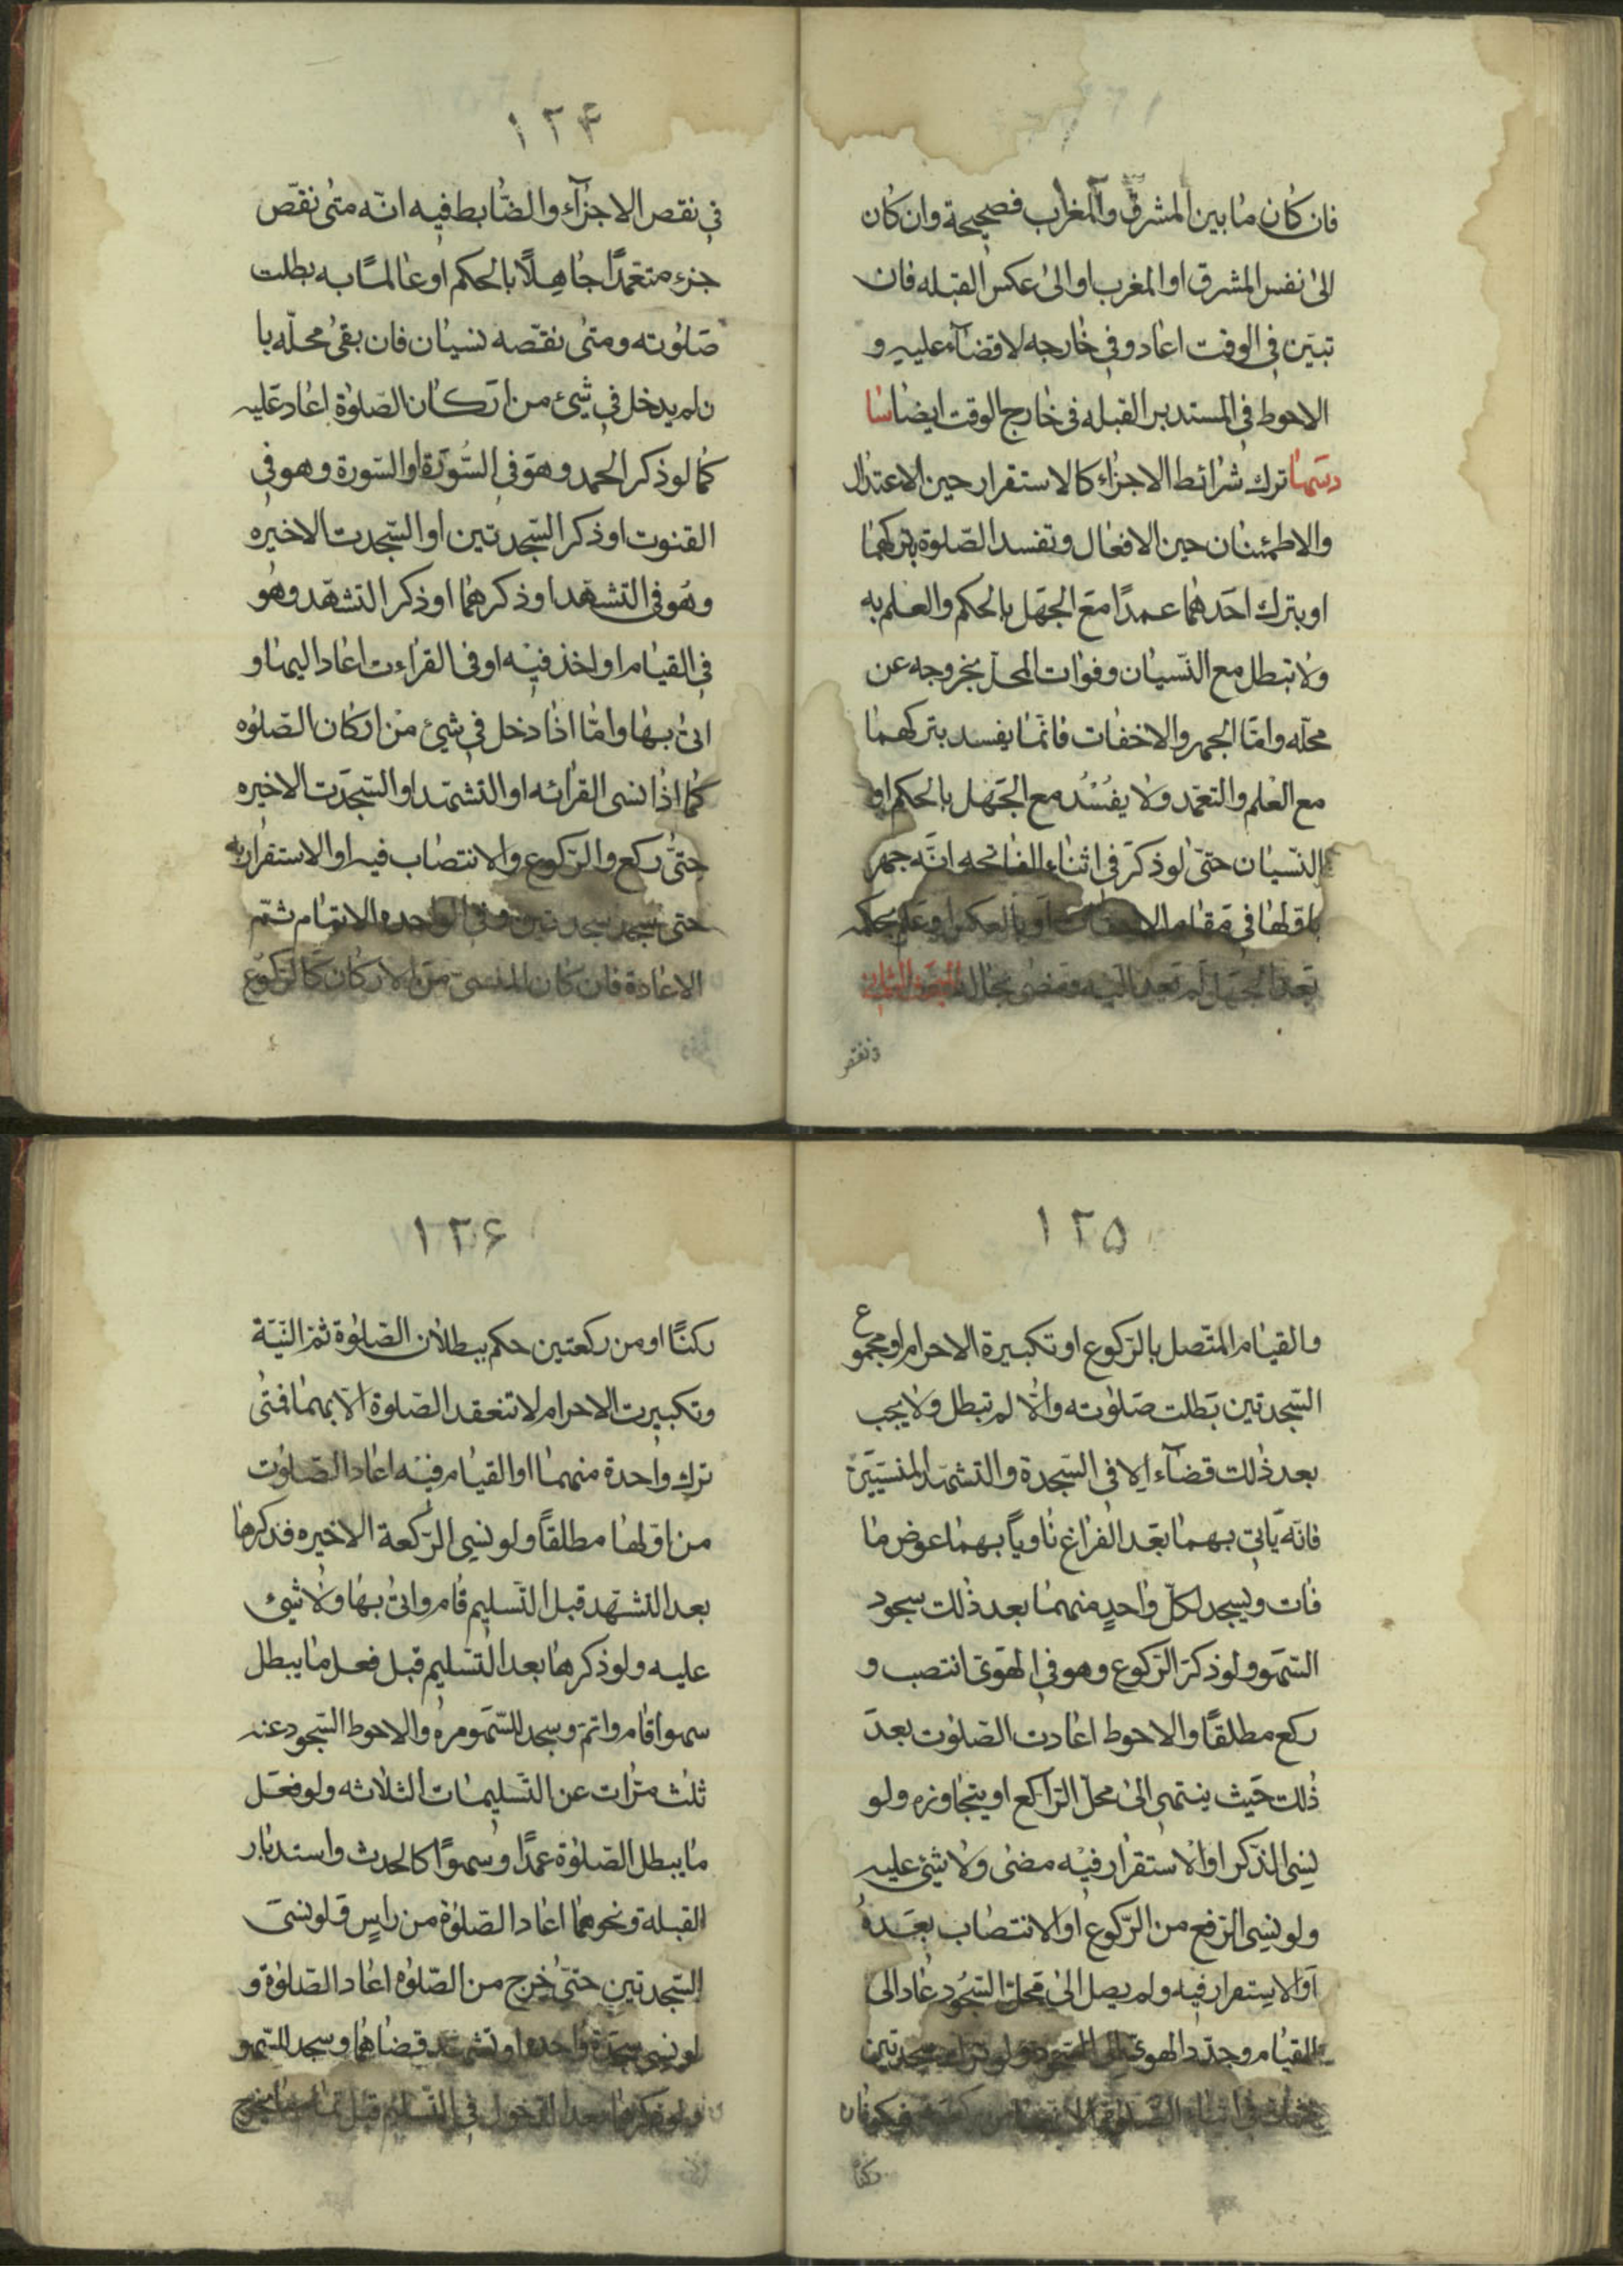 فان كان ما بين المشرق والمغراب فصحيحة وان كان
الى نفس المشرق او المغرب او الى عكس القبله فان
تبيّن في الوقت اعاد وفي خارجه لا قضآء عليه و
الاحوط في المستدبر القبله في خارج الوقت ايضا سا
دسها ترك شرائط الاجزاء كالاستقرار حين الاعتدال
والاطمئنان حين الافعال وتفسد الصّلوة بتركهما
او بترك احدهما عمدًا مع الجهل بالحكم والعلم به
ولا تبطل مع النّسيان وفوات المحلّ بخروجه عن
محلّه وامّا الجهر والاخفات فانّما يفسد بتركهما
مع العلم والتعمّد ولا يفسُد مع الجهل بالحكم او
النّسيان حتّى لو ذكر في اثناء الفاتحه انّه جهر
باوّلها في مقام الاخفات او بالعكس او علم بحكمه
بعد الجهل لم يعد اليه ومضى بحاله
ونقص
١٢۴
في نقص الاجزآء والضّابط فيه انّه متى نقّص
جزء متعمّدًا جاهلًا بالحكم او عالمًا به بطلت
صلوته ومتى نقّصه نسيان فان بقى محلّه با
ن لم يدخل في شيئ من اركان الصّلوة اعاد عليه
كما لو ذكر الحمد وهو في السّورة او السّورة وهو في
القنوت او ذكر السّجدتين او السّجدت الاخيره
وهو في التشهّد او ذكرهما او ذكر التشهّد وهو
في القيام او اخذ فيه او في القراءت اعاد اليها و
اتى بها وامّا اذا دخل في شيئ من اركان الصّلوه
كما اذا نسى القرائه او التشهّد او السّجدت الاخيره
حتّى ركع والرّكوع والانتصاب فيه او الاستقرار به
حتى سجد سجدتين وفي الواحده الاتمام ثمّ
الاعادة فان كان المنسىّ من الاركان كالرّكوع
١٢۵
والقيام المتّصل بالرّكوع او تكبيرة الاحرام او مجموع
السّجدتين بطلت صلوته والّا لم تبطل ولا يجب
بعد ذلك قضآء الا في السّجدة والتشهّد المنسيّين
فانّه ياتى بهما بعد الفراغ ناوياً بهما عوض ما
فات ويسجد لكلّ واحدٍ منهما بعد ذلك سجود
السّهو ولو ذكر الرّكوع وهو في الهوّى انتصب و
ركع مطلقًا والاحوط اعادت الصّلوت بعد
ذلك حيث ينتهى الى محلّ الرّاكع او يتجاوزه ولو
نسى الذّكر او الاستقرار فيه مضى ولا شيئ عليه
ولو نسى الرّفع من الرّكوع او الانتصاب بعدهُ
او الاستقرار فيه ولم يصل الى محلّ السّجود عاد الى
القيام وجدّد الهوىّ الى السّجود ولو ترك سجدتين
في اثناء الصّلوة
ركنًا
١٢۶
ركنًا او من ركعتين حكم ببطلان الصّلوة ثمّ النيّة
وتكبيرت الاحرام لا تنعقد الصّلوة الّا بهما فمتى
ترك واحدة منهما او القيام فيه اعاد الصّلوت
من اوّلها مطلقاً ولو نسى الرّكعة الاخيره فذكرها
بعد التشهّد قبل التّسليم قام واتى بها ولا شيئ
عليه ولو ذكرها بعد التّسليم قبل فعل ما يبطل
سهوا قام واتمّ وسجد للسّهو مره والاحوط السّجود عنه
ثلث مرّات عن التّسليمات الثلاثه ولو فعل
ما يبطل الصّلوة عمدًا وسهوًا كالحدث واستدبار
القبلة ونحوهما اعاد الصّلوة من راسٍ ولو نسى
السّجدتين حتّى خرج من الصّلوه اعاد الصّلوة و
لو نسى سجدة واحده او تشهّد قضاهما وسجد للسّهو
ولو ذكرها بعد الدّخول في التّسليم قبل